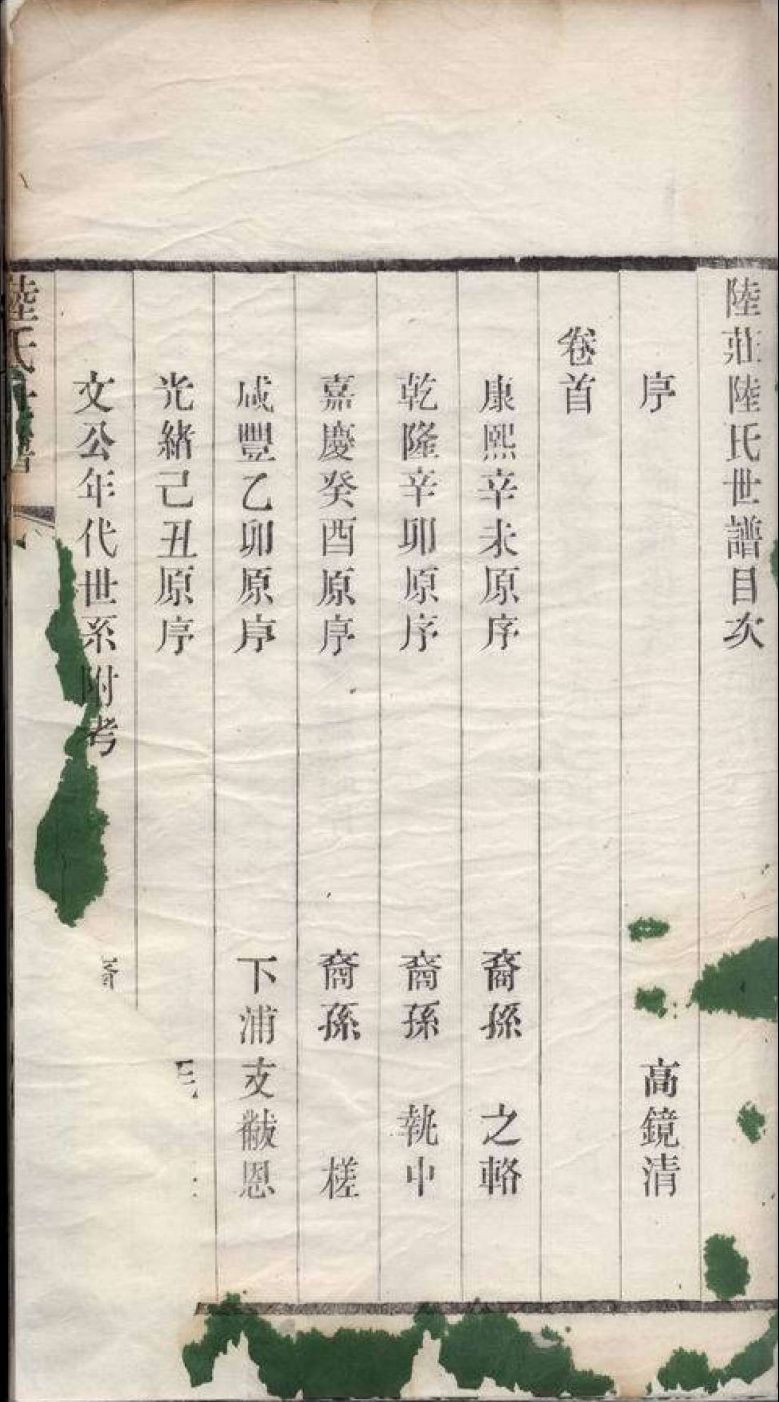 陸莊陸氏世譜目次
序 高鏡清
卷首
康熙辛未原序 裔孫 之輅
乾隆辛卯原序 裔孫 執中
嘉慶癸酉原序 裔孫 槎
咸豐乙卯原序 下浦支黻恩
光緒己丑原序
文公年代世系附考
陸氏世譜